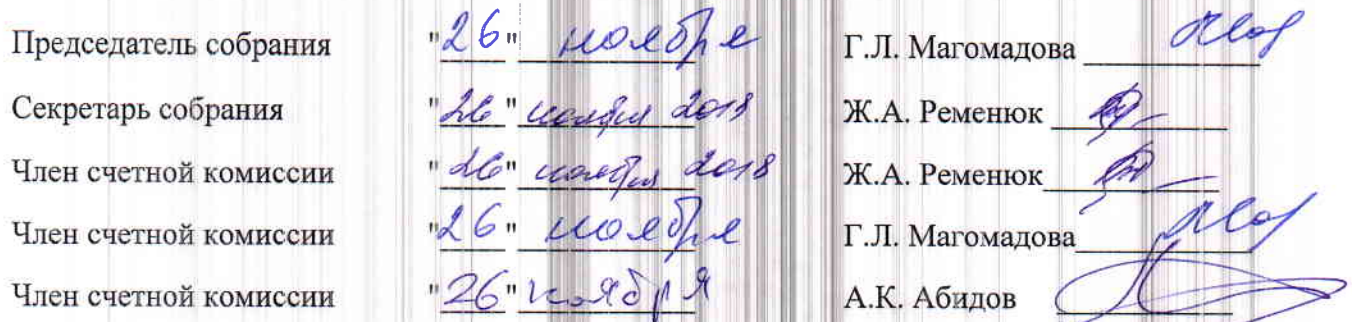 Председатель собрания "26" ноября Г.Л. Магомадова
Секретарь собрания "26" ноября 2018 Ж.А. Ременюк
Член счетной комиссии "26" ноября 2018 Ж.А. Ременюк
Член счетной комиссии "26" ноября Г.Л. Магомадова
Член счетной комиссии "26" ноября А.К. Абидов